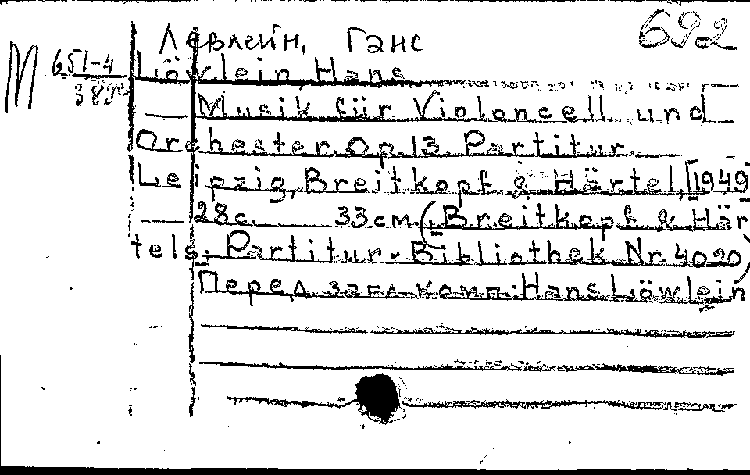 692
Левлейн, Ганс
М 651-4
Löwlein, Hans
Musik für Violoncell und
Orchester. Op. 13. Partitur.
Leipzig, Breitkopf & Härtel, [1949]
28с. 33 cm. (Breitkopf & Här
tels. Partitur-Bibliothek Nr. 4020)
Перед загл. комп.: Hans Löwlein